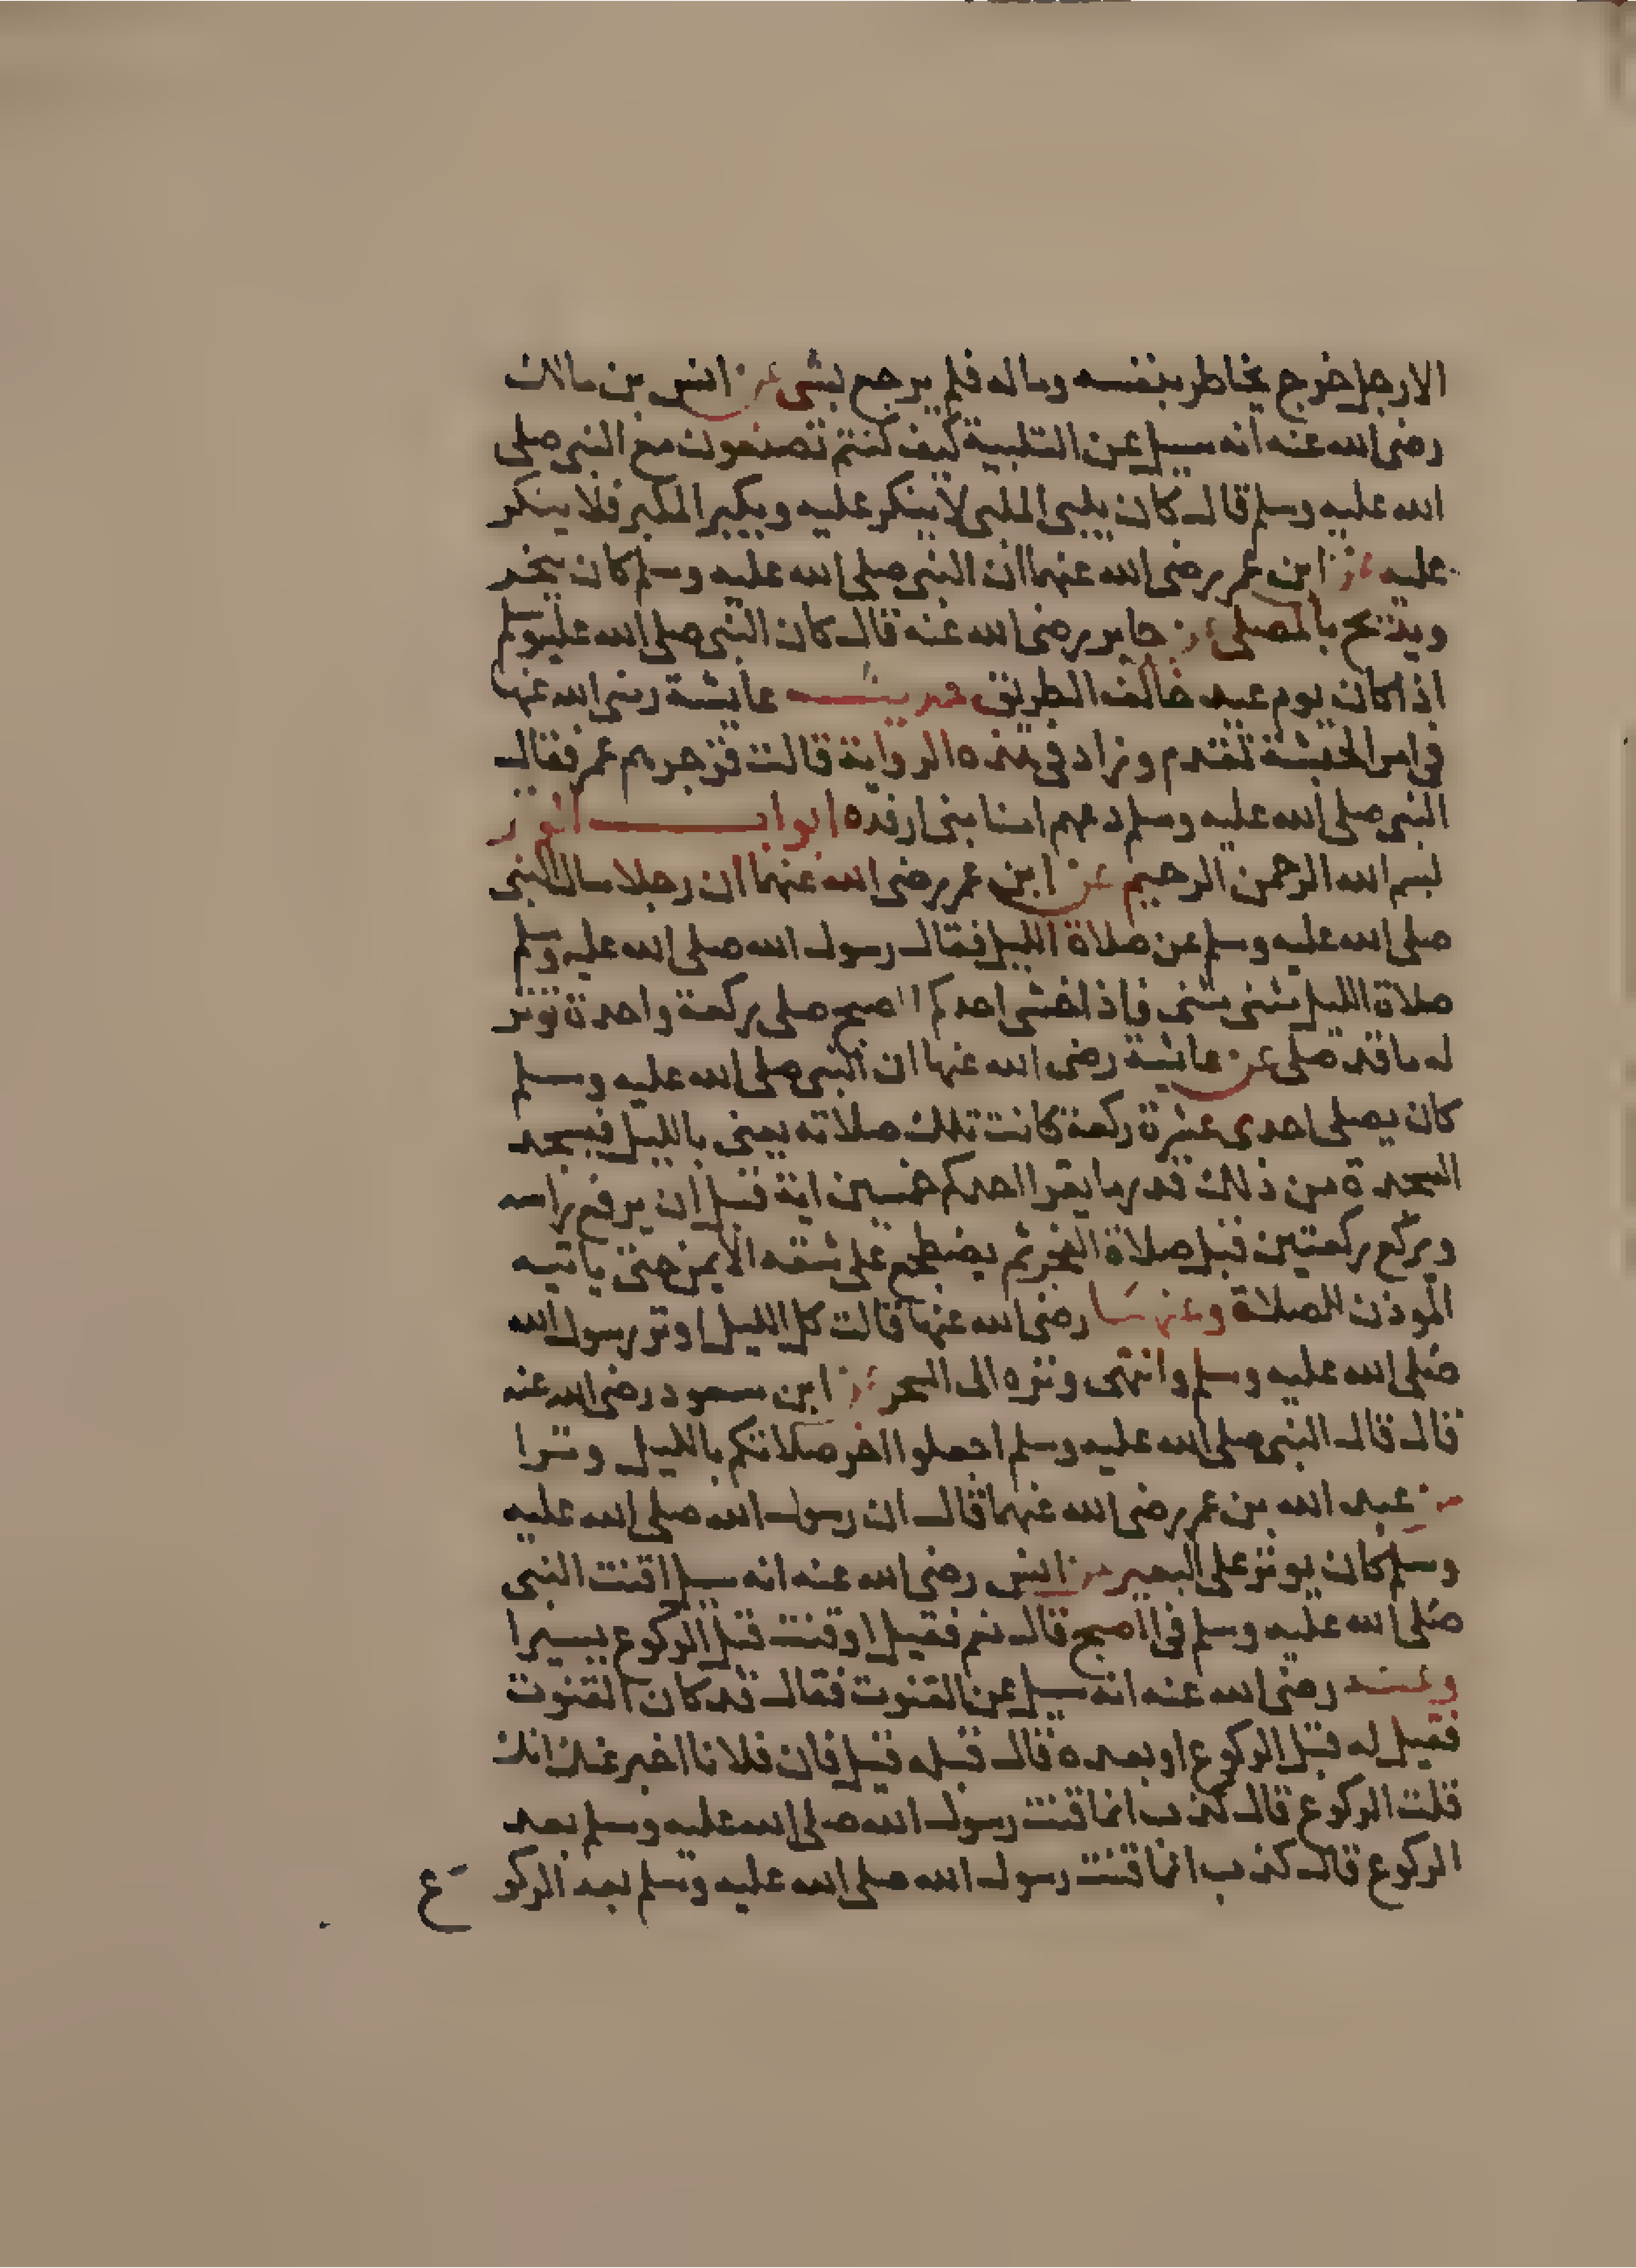 الا رجل خرج يخاطر بنفسه وماله فلم يرجع بشى عن انس بن مالك
رضى الله عنه انه سيل عن التلبية كيف كنتم تصنعون مع النبى صلى
الله عليه وسلم قال كان يلبى الملبى لا ينكر عليه ويكبر المكبر فلا ينكر
عليه عن ابن عمر رضى الله عنهما ان النبى صلى الله عليه وسلم كان ينحر
ويذبح بالمصلى عن جابر رضى الله عنه قال كان النبى صلى الله عليه وسلم
اذا كان يوم عيد خالف الطريق حديث عايشة رضى الله عنها
فى امر الحبشة تقدم وزاد فى هذه الرواية قالت فزجرهم عمر فقال
النبى صلى الله عليه وسلم دعهم امنا بنى ارفده ابواب الوتر
بسم الله الرحمن الرحيم عن ابن عمر رضى الله عنهما ان رجلا سال النبى
صلى الله عليه وسلم عن صلاة الليل فقال رسول الله صلى الله عليه وسلم
صلاة الليل مثنى مثنى فاذا خشى احدكم الصبح صلى ركعة واحدة توتر
له ما قد صلى عن عايشة رضى الله عنها ان النبى صلى الله عليه وسلم
كان يصلى احدى عشرة ركعة كانت تلك صلاته يعنى بالليل فيسجد
السجدة من ذلك قدر ما يقرا احدكم خمسين اية قبل ان يرفع راسه
ويركع ركعتين قبل صلاة الفجر ثم يضطجع على شقه الايمن حتى ياتيه
الموذن للصلاة وعنها رضى الله عنها قالت كل الليل اوتر رسول الله
صلى الله عليه وسلم وانتهى وتره الى السحر عن ابن مسعود رضى الله عنه
قال قال النبى صلى الله عليه وسلم اجعلوا اخر صلاتكم بالليل وترا
عن عبد الله بن عمر رضى الله عنهما قال ان رسول الله صلى الله عليه
وسلم كان يوتر على البعير عن انس رضى الله عنه انه سيل اقنت النبى
صلى الله عليه وسلم فى الصبح قال نعم فقيل اوقنت قبل الركوع يسيرا
وعنه رضى الله عنه انه سيل عن القنوت فقال قد كان القنوت
فقيل له قبل الركوع او بعده قال قبله قيل فان فلانا اخبر عنك انك
قلت الركوع قال كذب انما قنت رسول الله صلى الله عليه وسلم بعد
الركوع قال كذب انما قنت رسول الله صلى الله عليه وسلم بعد الركوع